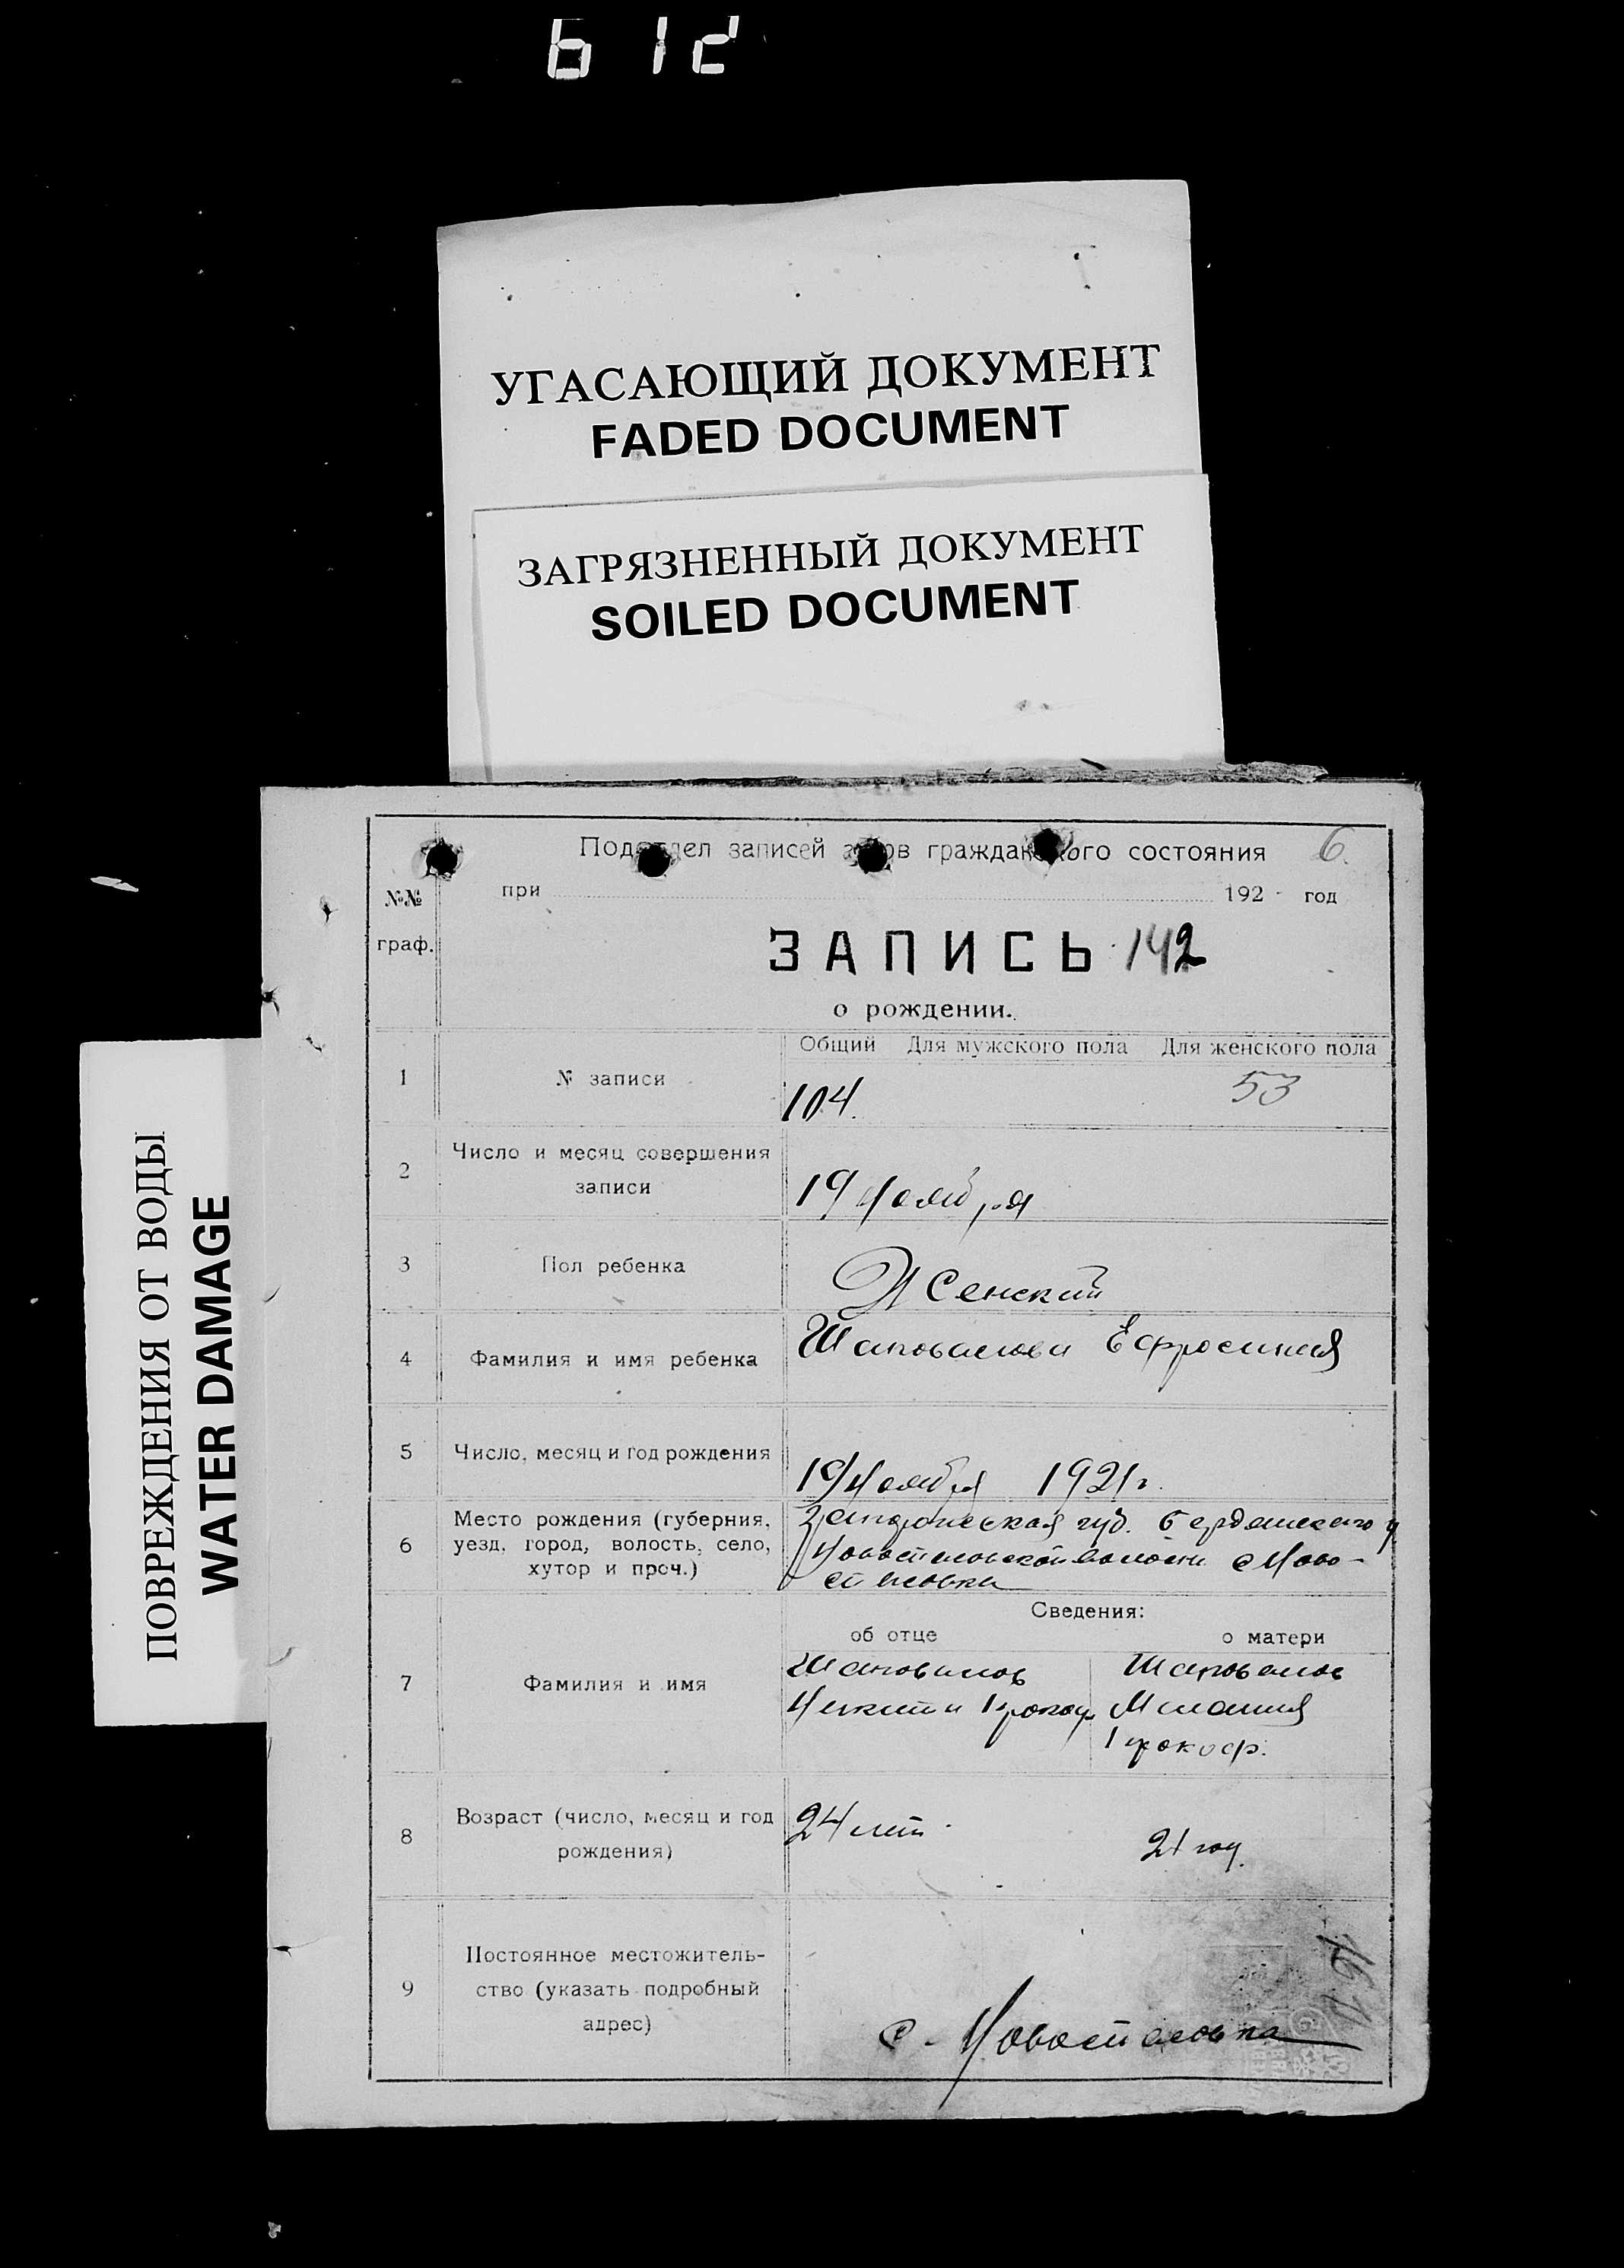 612
УГАСАЮЩИЙ ДОКУМЕНТ
FADED DOCUMENT
ЗАГРЯЗНЕННЫЙ ДОКУМЕНТ
SOILED DOCUMENT
ПОВРЕЖДЕНИЯ ОТ ВОДЫ
WATER DAMAGE
Подотдел записей актов гражданского состояния 6.
при 192 год
№№
граф.
ЗАПИСЬ 142
о рождении.
Общий Для мужского пола Для женского пола
1 № записи 104. 53
2 Число и месяц совершения
записи 19 ноября
3 Пол ребенка Женский
4 Фамилия и имя ребенка Шаповалова Ефросиния
5 Число, месяц и год рождения 19 ноября 1921 г.
6 Место рождения (губерния,
уезд, город, волость, село,
хутор и проч.)
Запорожская губ. Бердянского у
Новоспасовской волости с Ново-
спасовка
Сведения:
об отце о матери
7 Фамилия и имя
Шаповалов Шаповалов
Никита Прокоф. Мелания
Прокоф.
8 Возраст (число, месяц и год
рождения)
24 лет 21 год.
9 Постоянное местожитель-
ство (указать подробный
адрес)
с. Новоспасовка